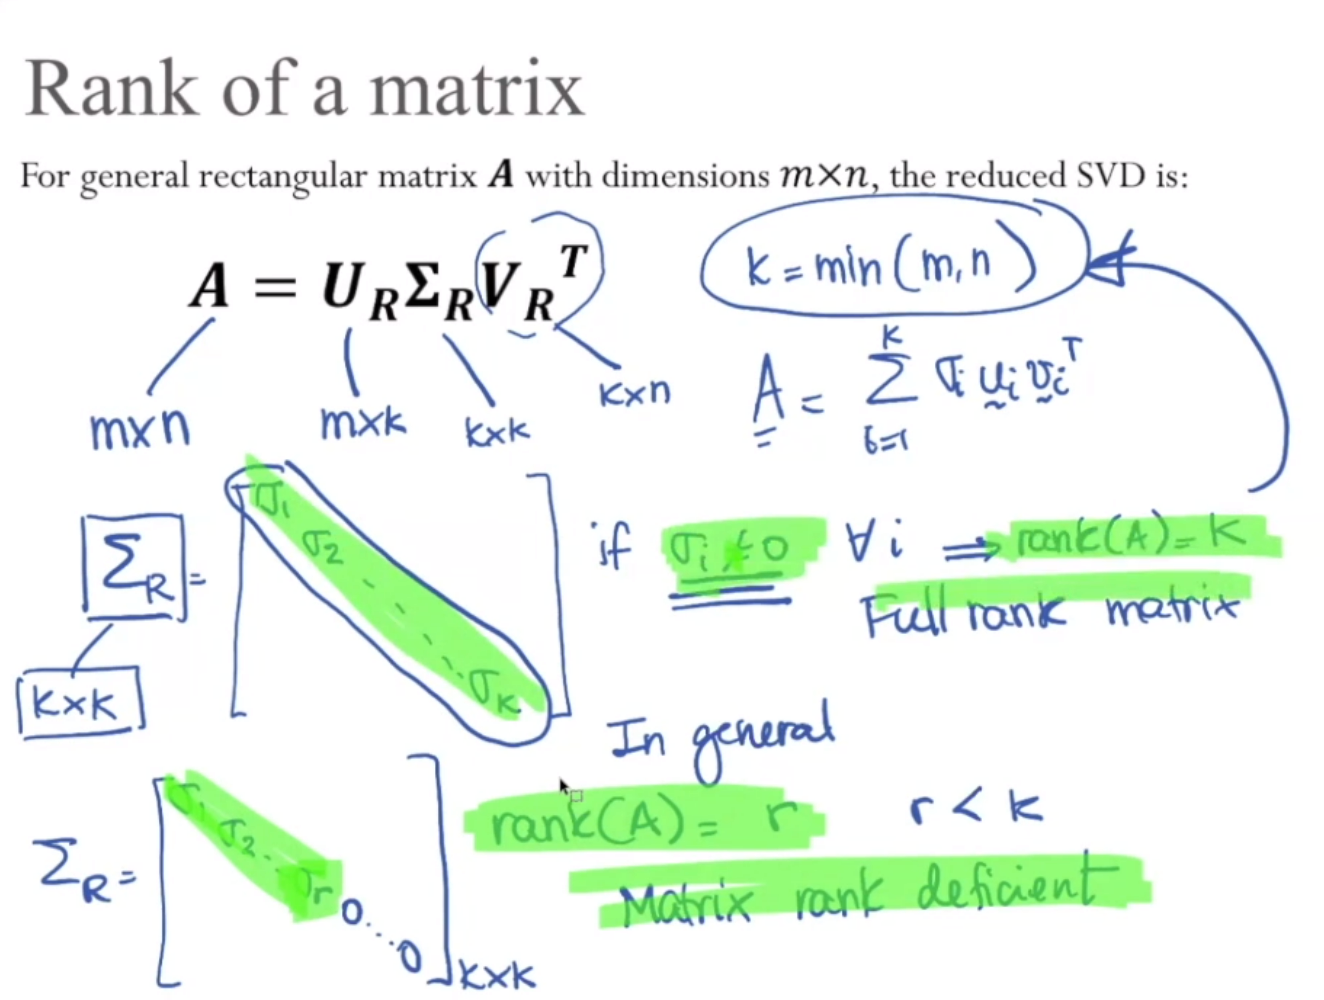 Rank of a matrix
For general rectangular matrix A with dimensions m×n, the reduced SVD is:
A = U_R Σ_R V_R^T
k = min(m,n)
m×n
m×k
k×k
k×n
A = Σ_{i=1}^{k} σ_i u_i v_i^T
Σ_R =
k×k
σ_1
σ_2
σ_k
if σ_i ≠ 0 ∀ i ⟹ rank(A) = k
Full rank matrix
In general
rank(A) = r r < k
Matrix rank deficient
Σ_R =
σ_1
σ_2
σ_r
0
0
k×k